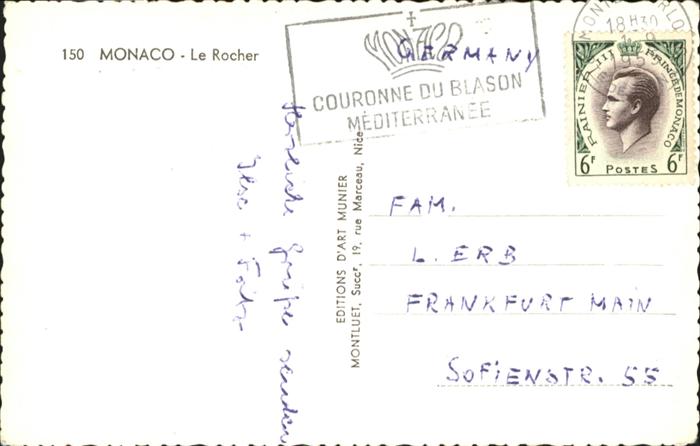 150 MONACO - Le Rocher
MONACO
COURONNE DU BLASON
MÉDITERRANÉE
GERMANY
MONTE-CARLO
18H30
RAINIER III PRINCE DE MONACO
6F POSTES 6F
Herzliche Grüße senden
Ilse + Fritz
EDITIONS D'ART MUNIER
MONTLUET, Succr, 19, rue Marceau, Nice
FAM.
L. ERB
FRANKFURT MAIN
SOFIENSTR. 55